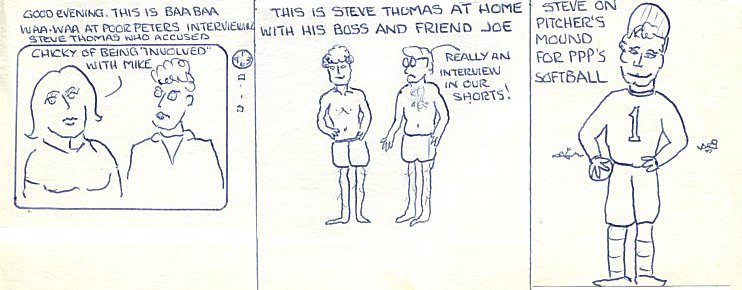 GOOD EVENING. THIS IS BAA BAA
WAA-WAA AT POOR PETERS INTERVIEWING
STEVE THOMAS WHO ACCUSED
CHICKY OF BEING "INVOLVED"
WITH MIKE
THIS IS STEVE THOMAS AT HOME
WITH HIS BOSS AND FRIEND JOE
REALLY AN
INTERVIEW
IN OUR
SHORTS!
STEVE ON
PITCHER'S
MOUND
FOR PPP'S
SOFTBALL
1